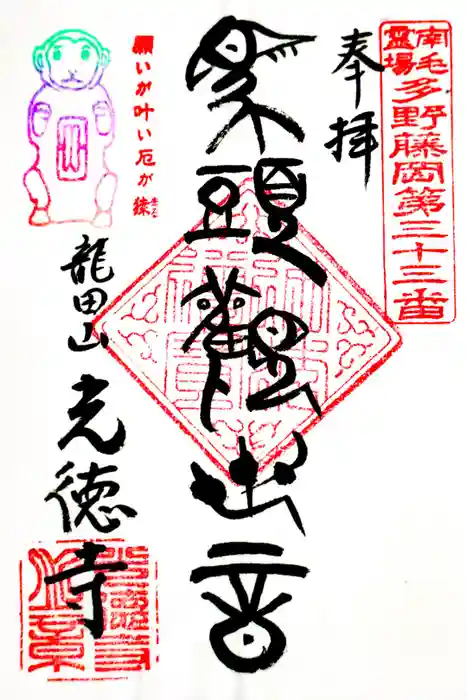 南毛霊場多野藤岡第三十三番
奉拝
馬頭観世音
願いが叶い厄が猿
さる
龍田山
光徳寺